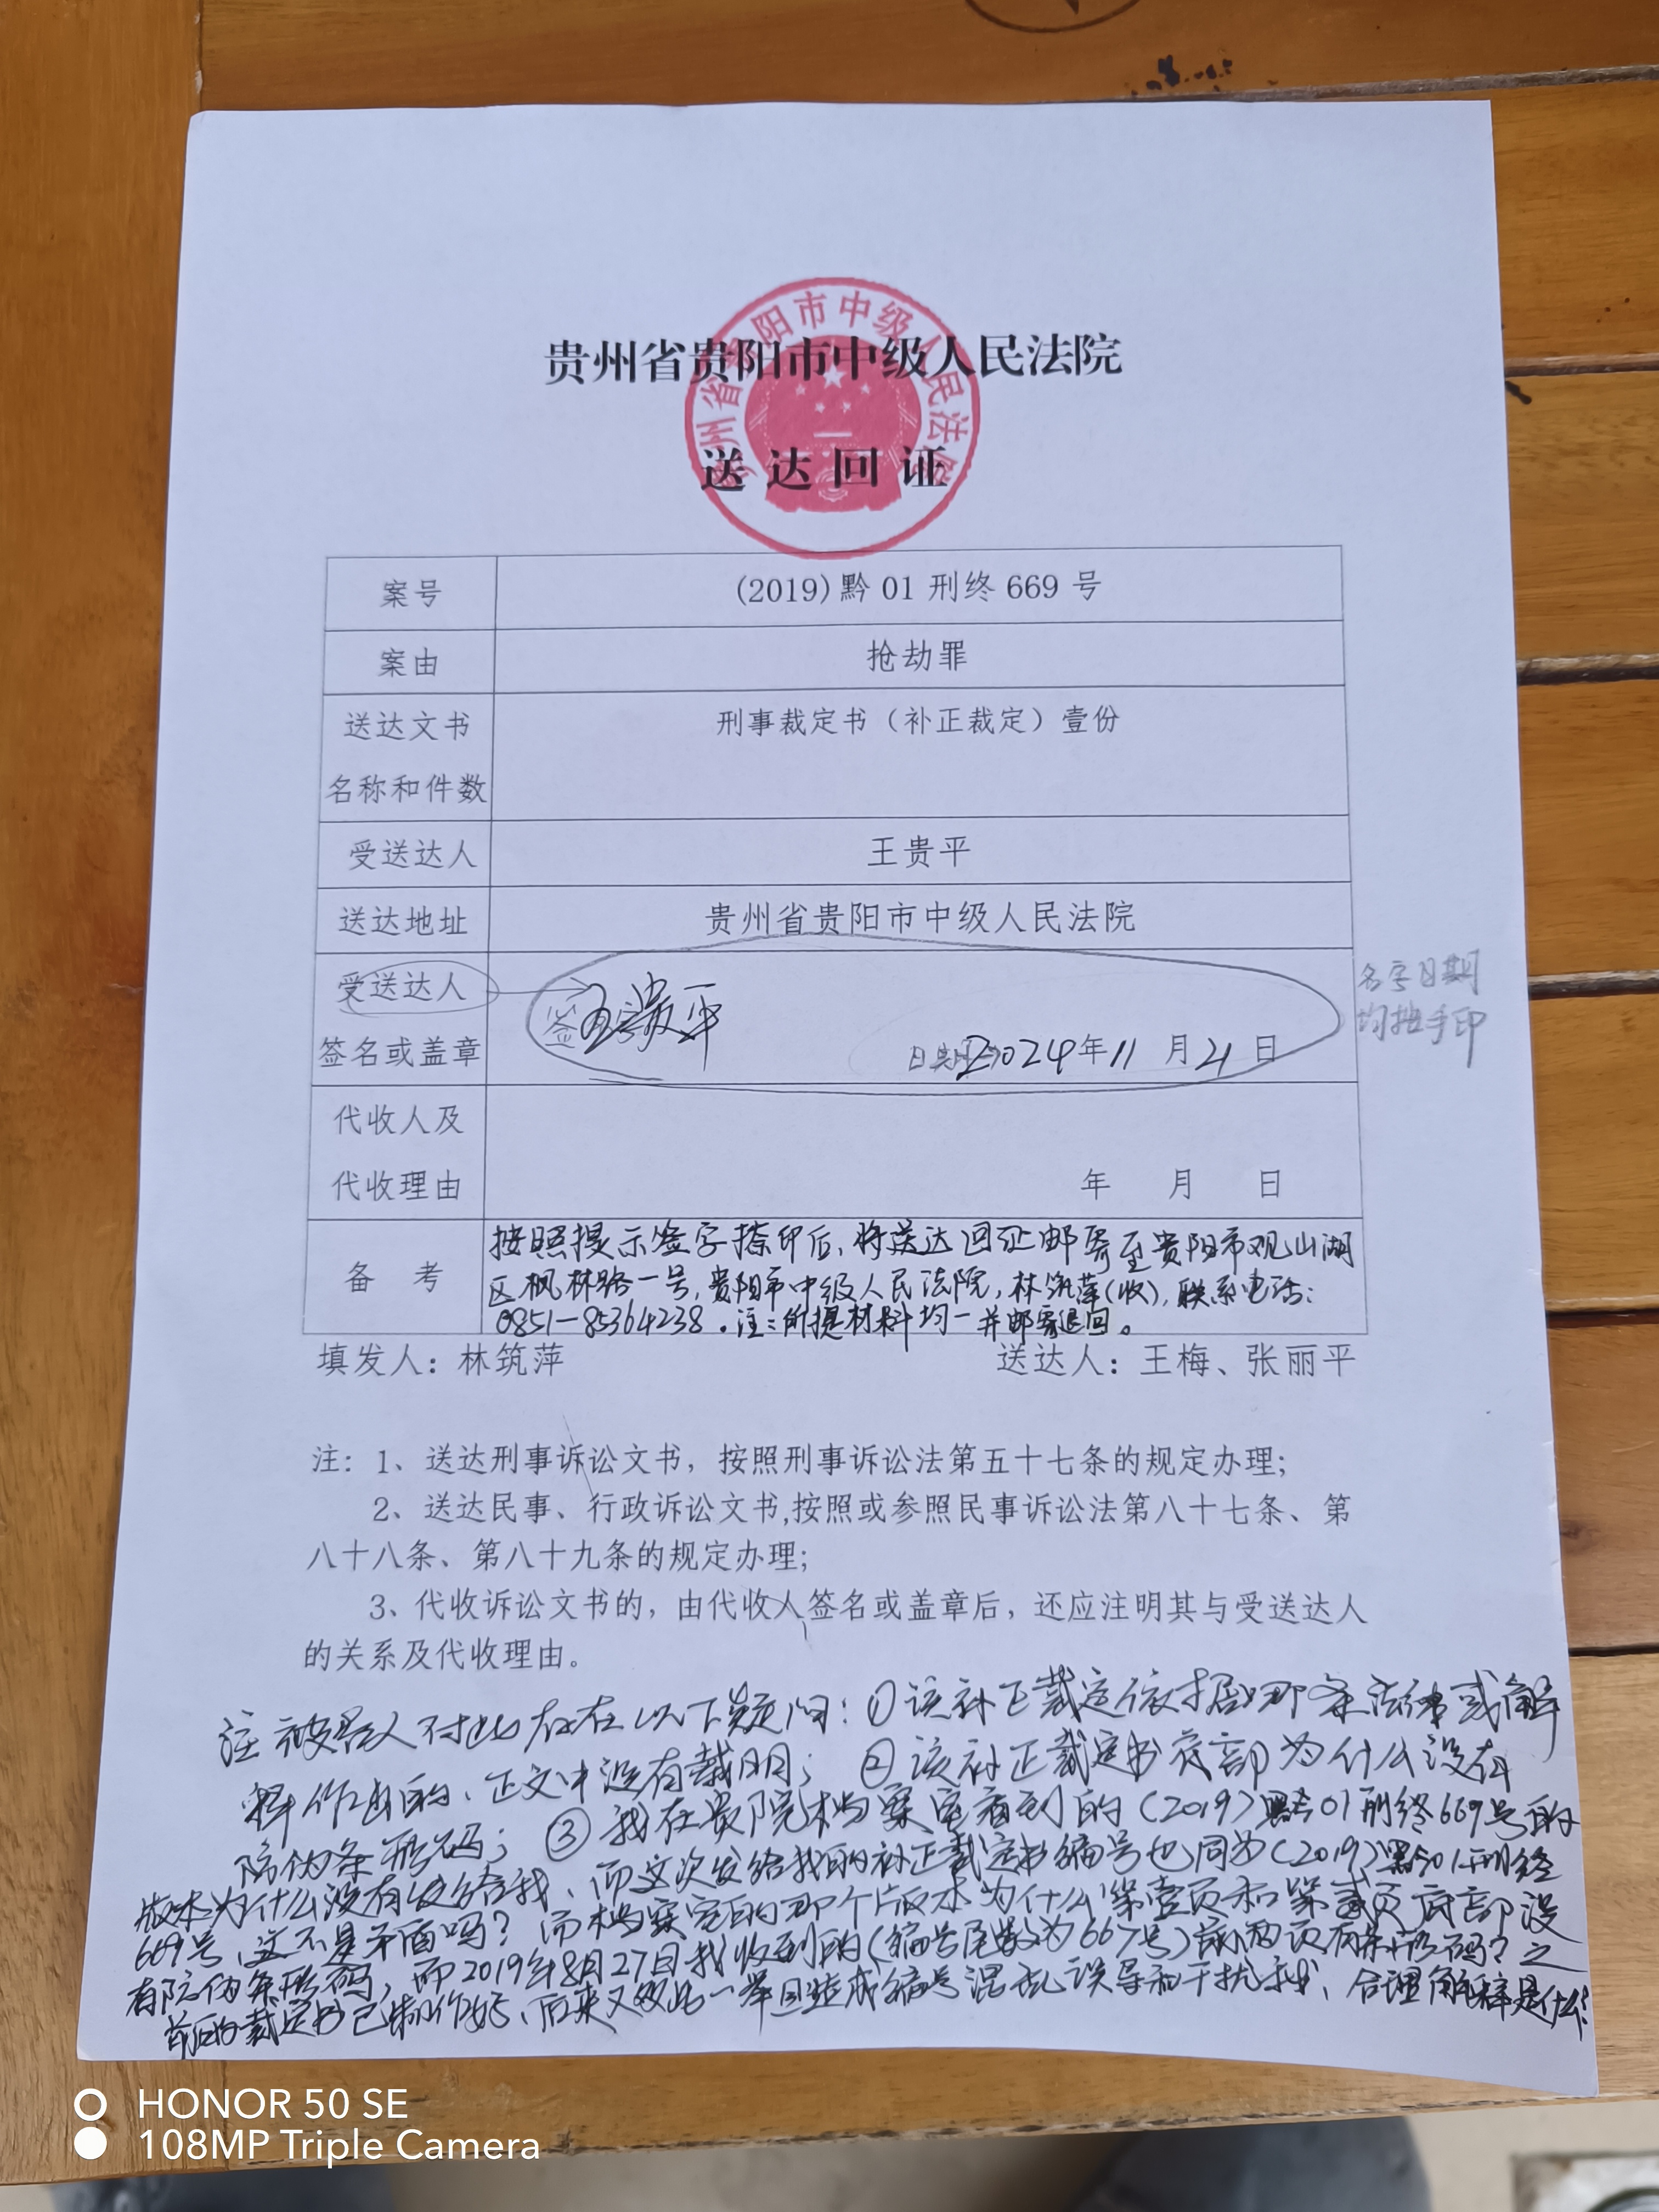 贵州省贵阳市中级人民法院
贵州省贵阳市中级人民法院
送达回证
案号 (2019)黔01刑终669号
案由 抢劫罪
送达文书 刑事裁定书（补正裁定）壹份
名称和件数
受送达人 王贵平
送达地址 贵州省贵阳市中级人民法院
受送达人 签字 王贵平 名字日期
签名或盖章 日期 2024年11月21日 均捺手印
代收人及
代收理由 年 月 日
按照提示签字捺印后,将送达回证邮寄至贵阳市观山湖
备考 区枫林路一号,贵阳市中级人民法院,林筑萍(收),联系电话:
0851-85364238.注:所提材料均一并邮寄退回。
填发人：林筑萍 送达人：王梅、张丽平
注：1、送达刑事诉讼文书，按照刑事诉讼法第五十七条的规定办理;
2、送达民事、行政诉讼文书,按照或参照民事诉讼法第八十七条、第
八十八条、第八十九条的规定办理;
3、代收诉讼文书的，由代收人签名或盖章后，还应注明其与受送达人
的关系及代收理由。
注 被告人对此存在以下疑问：①该补正裁定依据那条法律或解
释作出的、正文中没有载明；②该补正裁定书底部为什么没有
防伪条形码；③我在贵院档案室看到的(2019)黔01刑终669号的
版本为什么没有发给我、而这次发给我的补正裁定书编号也同为(2019)黔01刑终
669号、这不是矛盾吗？而档案室的那个版本为什么第壹页和第贰页底部没
有防伪条形码，而2019年8月27日我收到的(编号尾数为667号)前两页有条形码？之
前的裁定书已制作好、后来又 一举 造成编号混乱误导和干扰我、合理解释是什么？
HONOR 50 SE
108MP Triple Camera